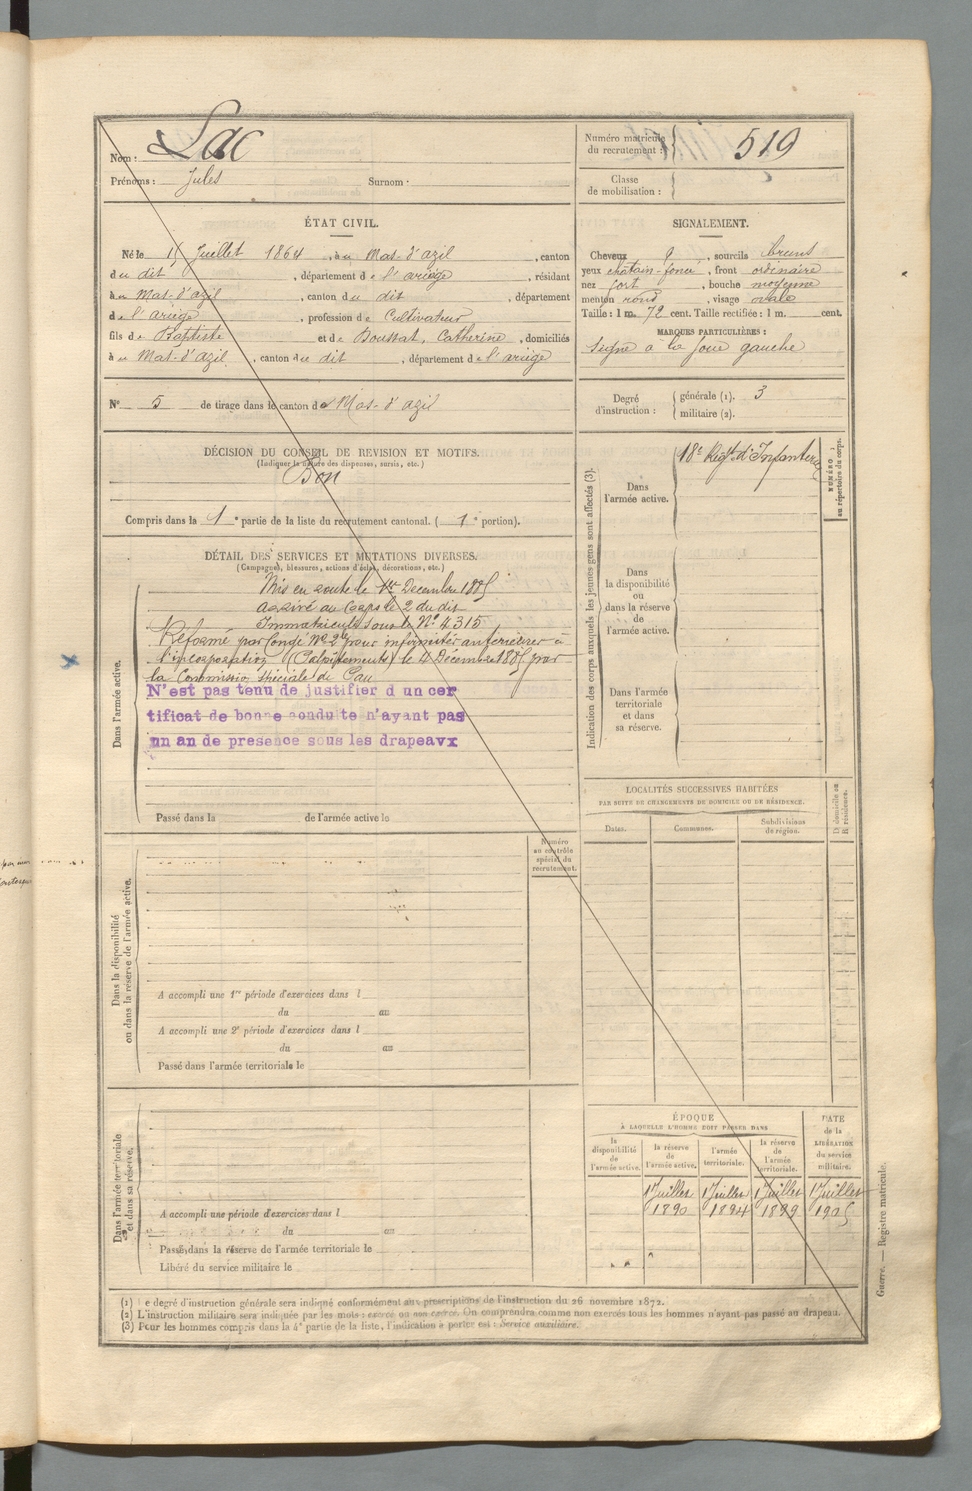 Nom : Lac
Prénoms : Jules Surnom :
Numéro matricule du recrutement : 519
Classe de mobilisation :
ÉTAT CIVIL.
Né le Juillet 1864, à u Mas-d'azil, canton
du dit, département de l'ariège, résidant
à u Mas-d'azil, canton du dit, département
de l'ariège, profession de Cultivateur
fils de Baptiste et de Doussat, Catherine, domiciliés
à u Mas-d'azil, canton du dit, département de l'ariège
SIGNALEMENT.
Cheveux , sourcils bruns
yeux chatain-foncé, front ordinaire
nez fort, bouche moyenne
menton rond, visage ovale
Taille : 1 m. 72 cent. Taille rectifiée : 1 m. cent.
MARQUES PARTICULIÈRES :
Signe à la joue gauche
N° 5 de tirage dans le canton de Mas-d'azil
Degré d'instruction : générale (1). 3
militaire (2).
DÉCISION DU CONSEIL DE REVISION ET MOTIFS.
(Indiquer la nature des dispenses, sursis, etc.)
Bon
Compris dans la 1e partie de la liste du recrutement cantonal. (1e portion).
DÉTAIL DES SERVICES ET MUTATIONS DIVERSES.
(Campagnes, blessures, actions d'éclat, décorations, etc.)
Dans l'armée active.
Mis en route le 1er Décembre 1885
arrivé au Corps le 2 du dit
Immatriculé sous le N° 4315
Réformé par Congé N° 2 pour infirmités antérieures à
l'incorporation (Palpitements) le 4 Décembre 1885 par
la Commission spéciale de Pau
N'est pas tenu de justifier d un cer
tificat de bonne condu te n'ayant pas
un an de presence sous les drapeavx
Passé dans la de l'armée active le
Indication des corps auxquels les jeunes gens sont affectés (3).
NUMÉRO : au répertoire du corps.
Dans l'armée active.
18e Régt d'Infanterie
Dans la disponibilité ou dans la réserve de l'armée active.
Dans l'armée territoriale et dans sa réserve.
LOCALITÉS SUCCESSIVES HABITÉES
PAR SUITE DE CHANGEMENTS DE DOMICILE OU DE RÉSIDENCE.
Dates. Communes. Subdivisions de région. D. domicile ou R. résidence.
Numéro au contrôle spécial du recrutement.
Dans la disponibilité ou dans la réserve de l'armée active.
A accompli une 1re période d'exercices dans l
du au
A accompli une 2e période d'exercices dans l
du au
Passé dans l'armée territoriale le
Dans l'armée territoriale et dans sa réserve.
A accompli une période d'exercices dans l
du au
Passé dans la réserve de l'armée territoriale le
Libéré du service militaire le
ÉPOQUE
À LAQUELLE L'HOMME DOIT PASSER DANS
la disponibilité de l'armée active.
la réserve de l'armée active.
l'armée territoriale.
la réserve de l'armée territoriale.
DATE de la LIBÉRATION du service militaire.
1 Juillet 1 Juillet 1 Juillet 1 Juillet
1890 1894 1899 1905
Guerre. — Registre matricule.
(1) e degré d'instruction générale sera indiqué conformément aux prescriptions de l'instruction du 26 novembre 1872.
(2) L'instruction militaire sera indiquée par les mots : exercé ou non exercé. On comprendra comme non exercés tous les hommes n'ayant pas passé au drapeau.
(3) Pour les hommes compris dans la 4e partie de la liste, l'indication à porter est : Service auxiliaire.